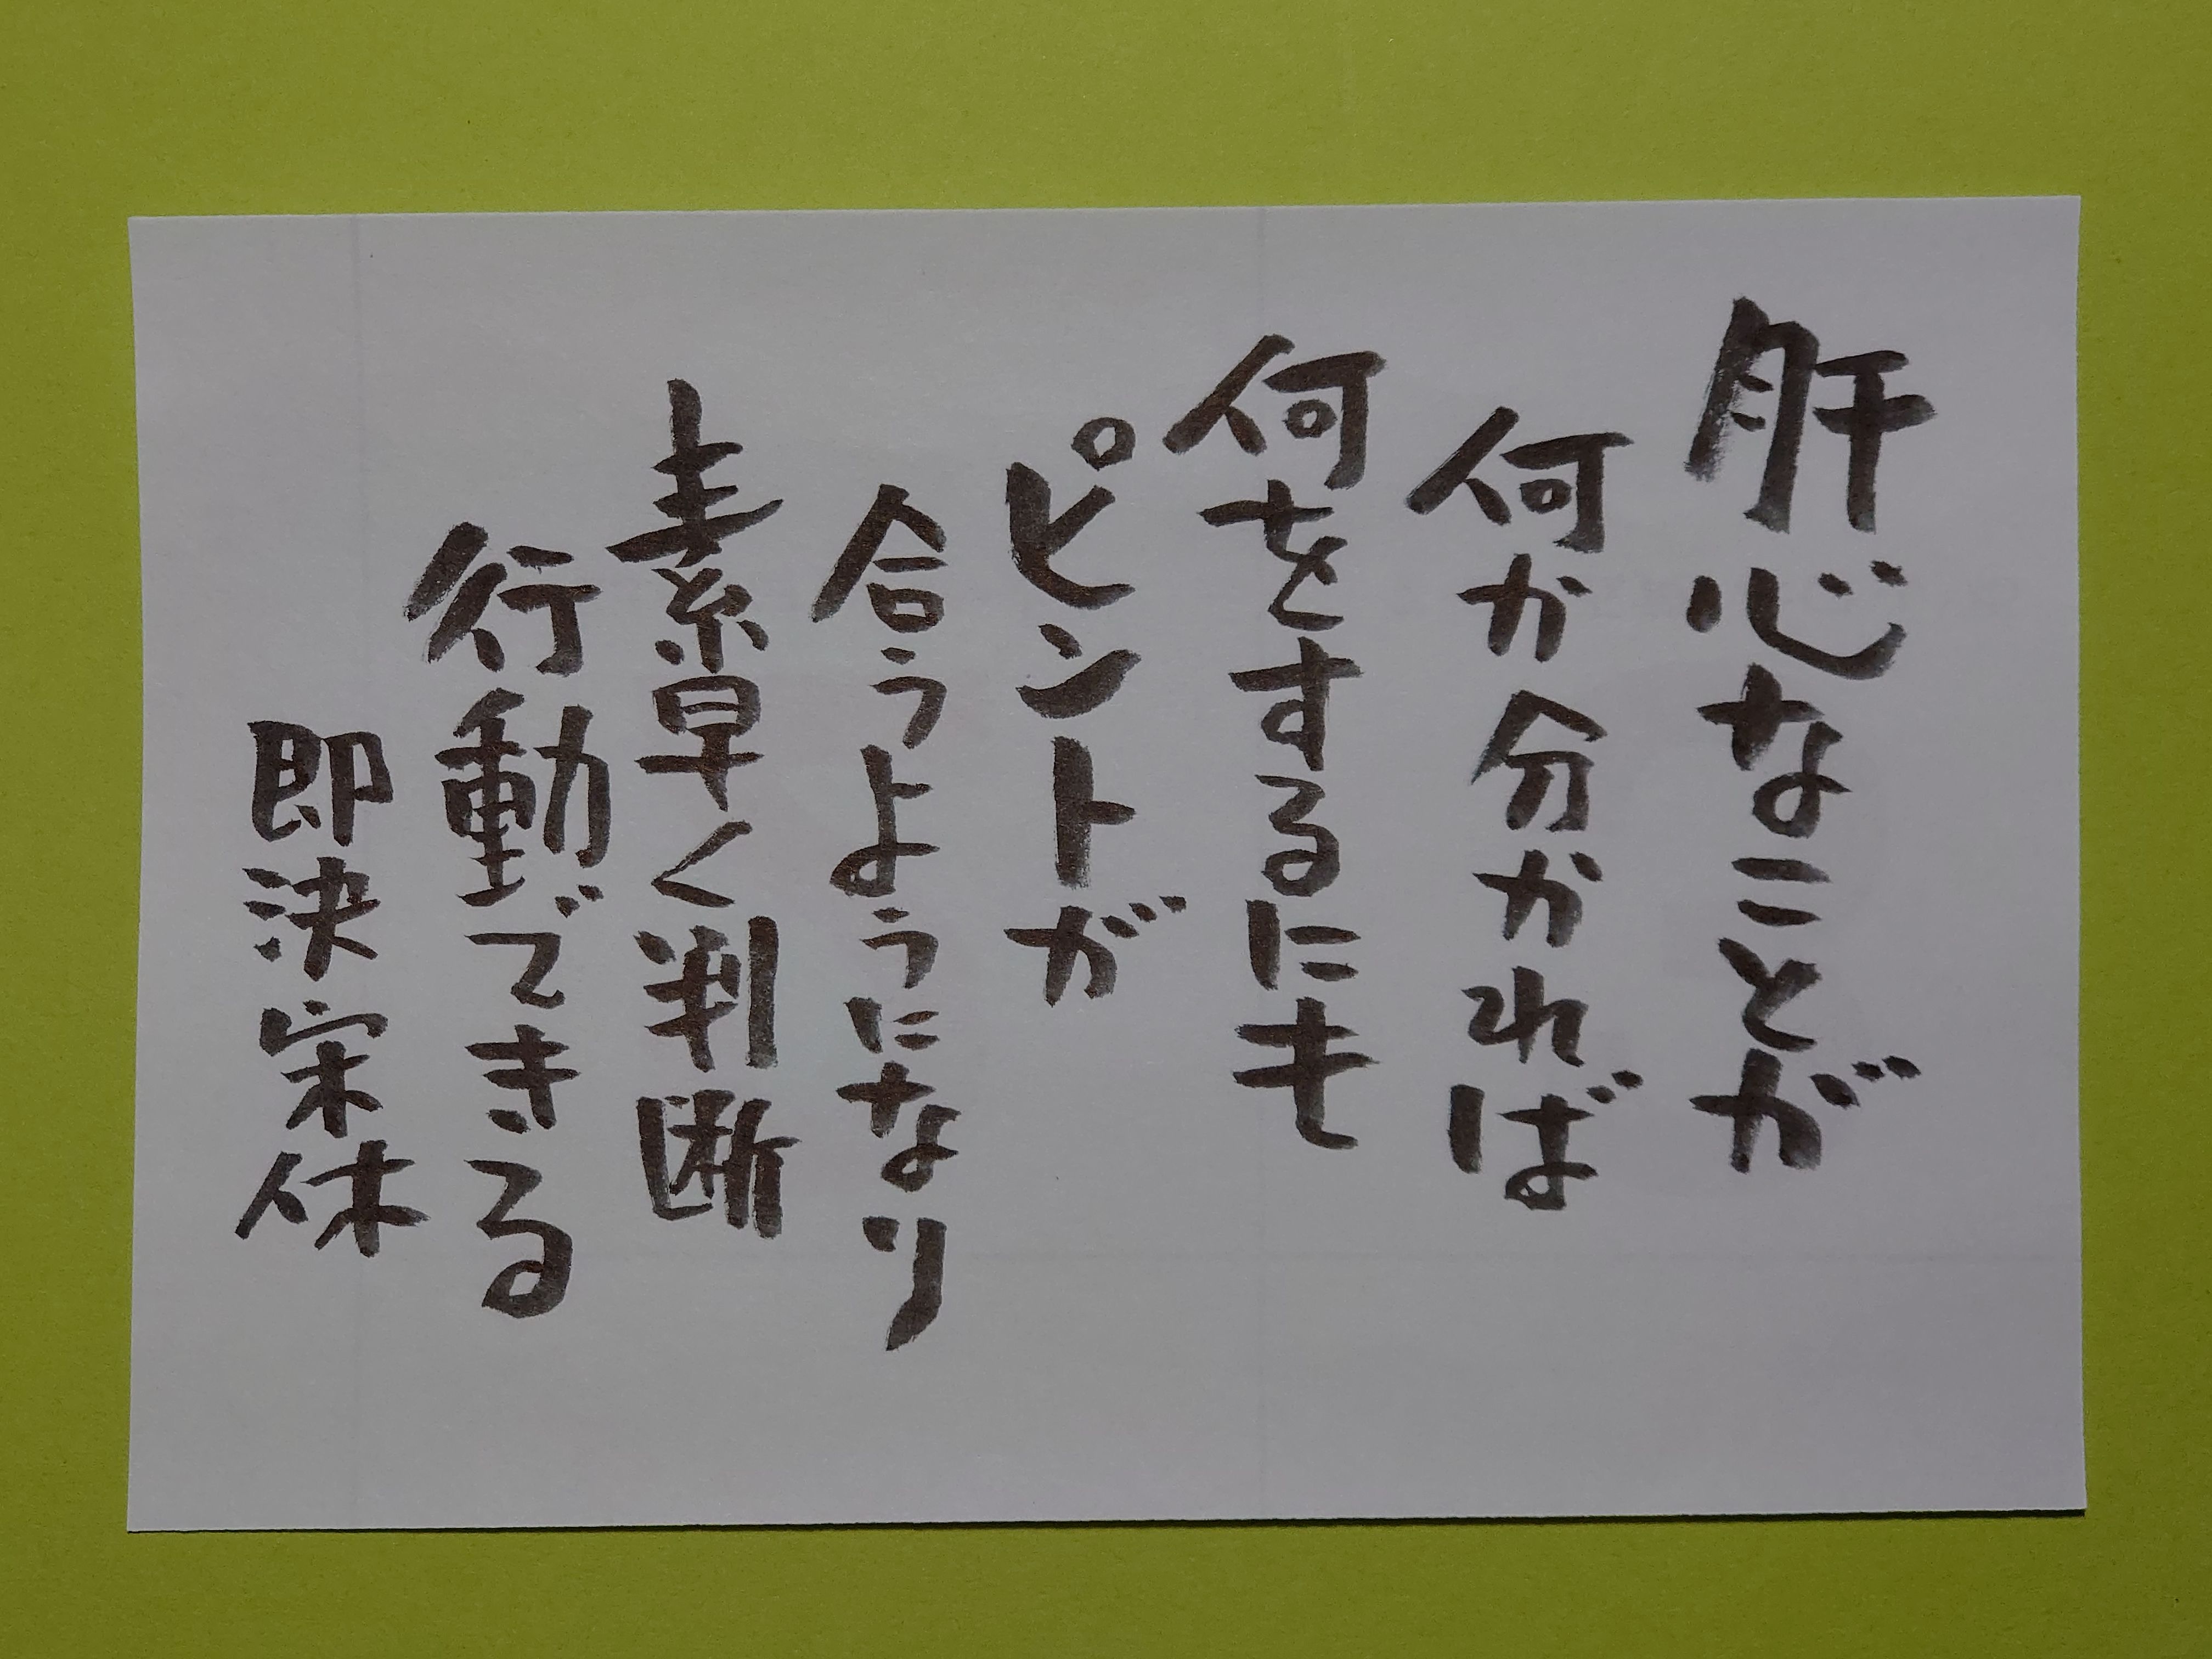 肝心なことが
何か分かれば
何をするにも
ピントが
合うようになり
素早く判断
行動できる
即決宗休